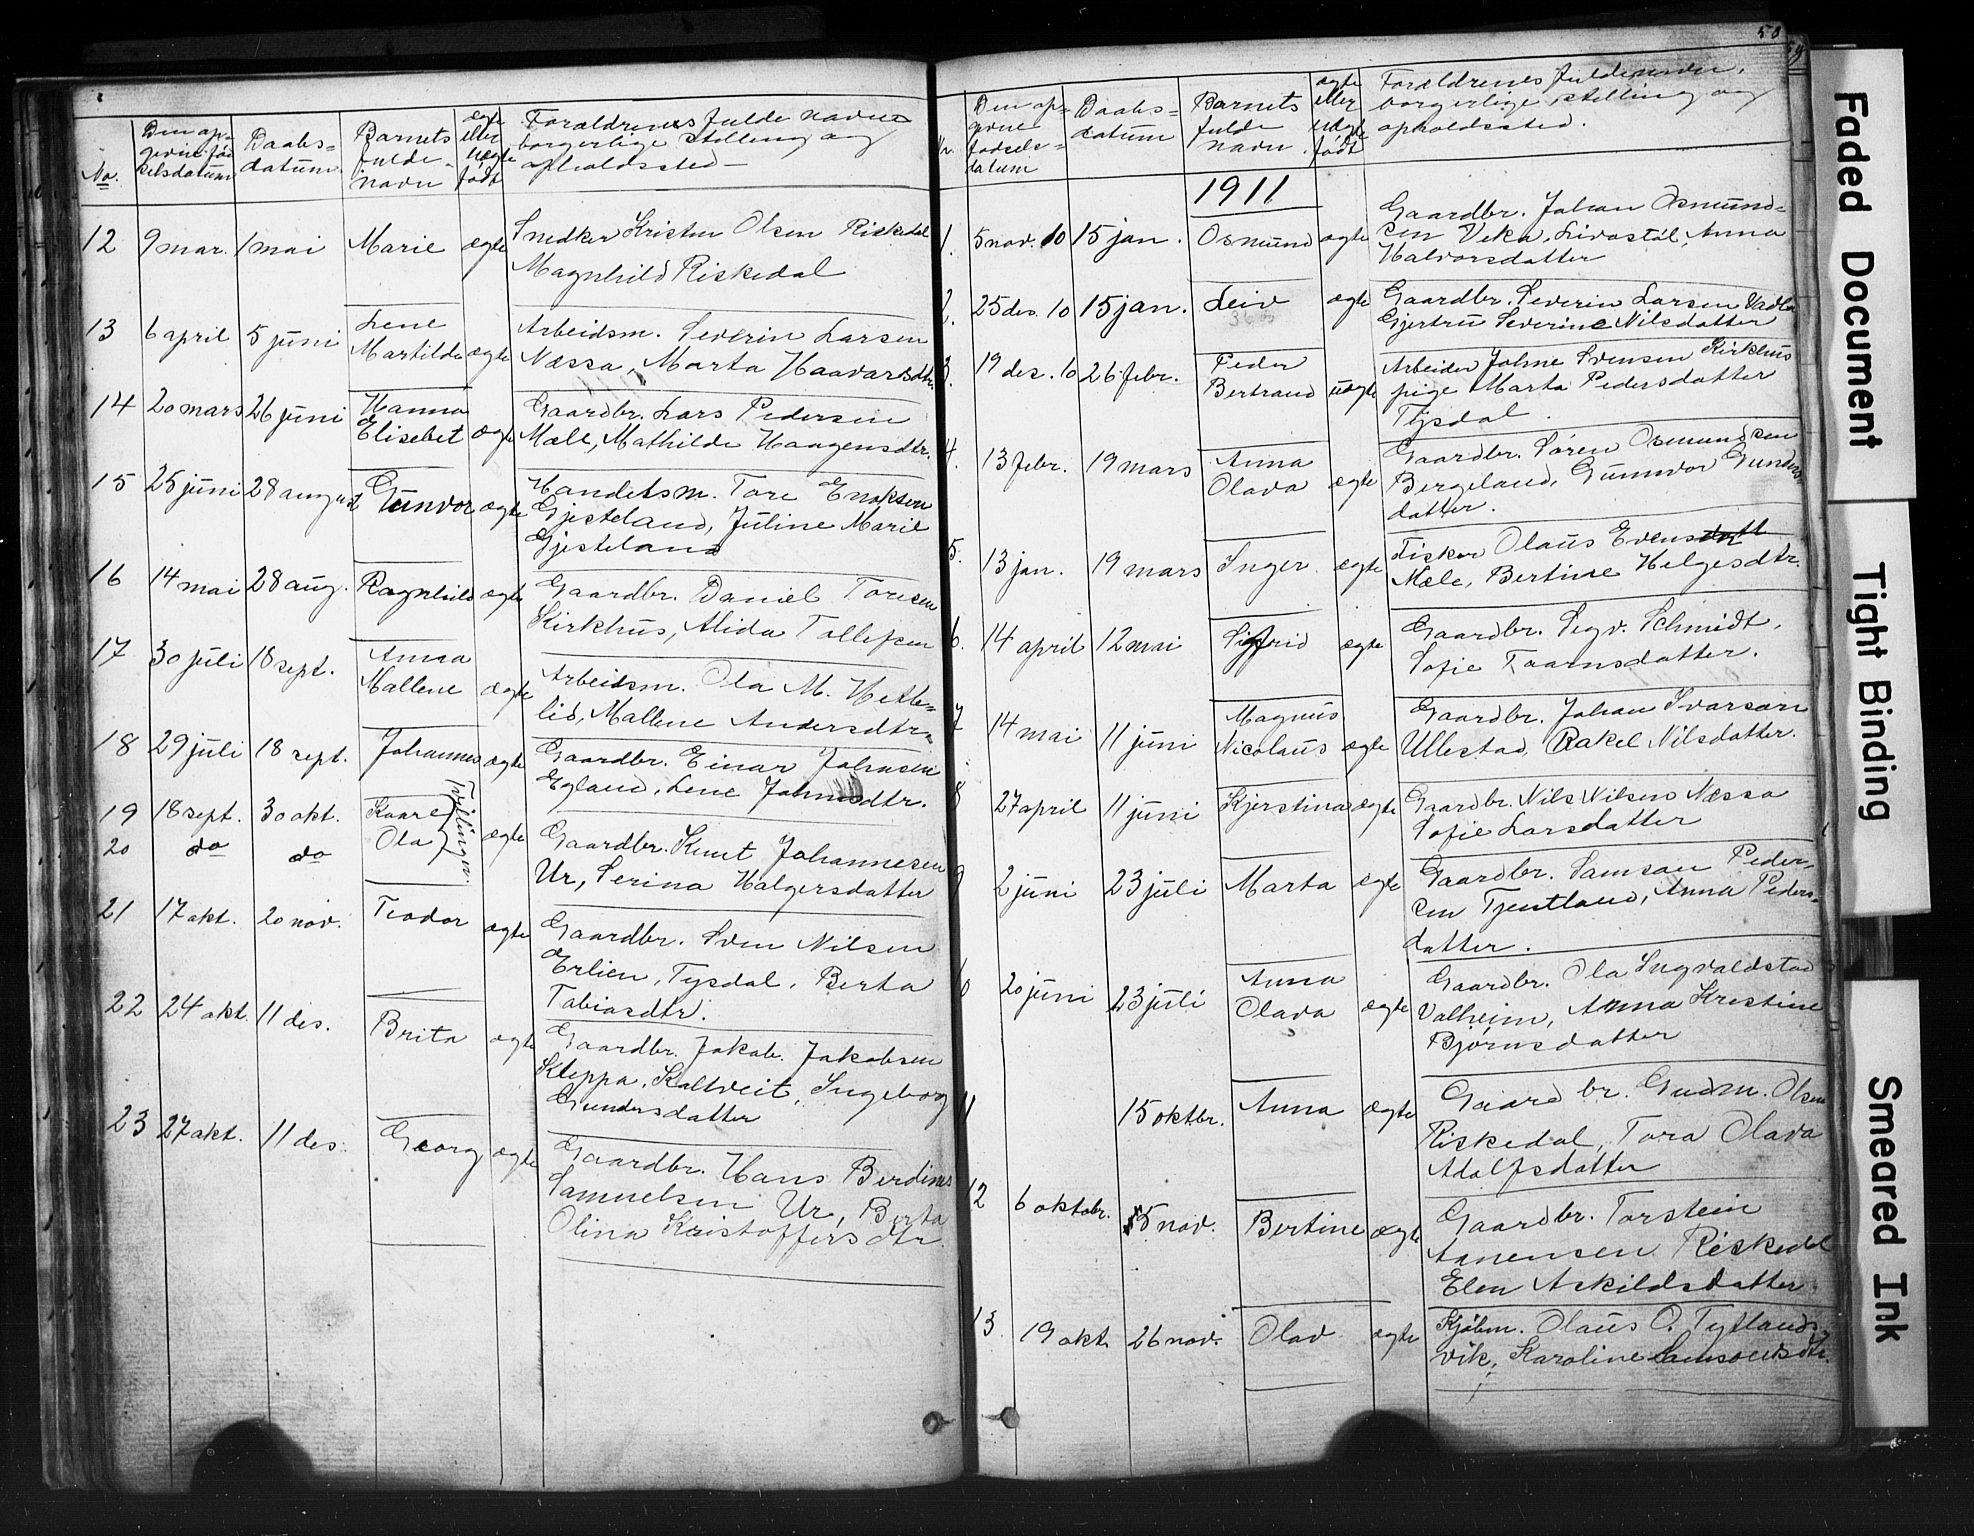 No.
Den op-
givne fød
selsdatum
Daabs-
datum
Barnets
fulde
navn
ægte
eller
uægte
født
Forældrenes fulde navne
borgerlige stilling og
opholdssted
12 9 mar. 1 mai Marie ægte
Snedker Kristen Olsen Riskedal
Magnhild Riskedal
13 6 april 5 juni Lene
Martilde ægte
Arbeidsm. Severin Larsen
Næssa, Marta Haavarsdtr.
14 20 mars 26 juni Hanna
Elisebet ægte
Gaardbr. Lars Pedersen
Mæle, Mathilde Haagensdtr.
15 25 juni 28 august Gunvor ægte
Handelsm. Tore Enoksen
Gjesteland, Juline Marie
Gjesteland
16 14 mai 28 aug. Ragnhild ægte
Gaardbr. Daniel Toresen
Kirkhus, Alida Tollefsen
17 30 juli 18 sept. Anna
Mallene ægte
Arbeidsm. Ola M. Hetle-
lid, Mallene Andersdtr.
18 29 juli 18 sept. Johannes ægte
Gaardbr. Einar Johnsen
Egland, Lene Johnsdtr.
19 18 sept. 30 okt. Kaare
20 do do Ola
Tvilinger.
ægte
Gaardbr. Knut Johannesen
Ur, Serina Halgersdatter
21 17 okt. 20 nov. Teodor ægte
Gaardbr. Sven Nilsen
Erlien, Tysdal, Berta
Tobiasdtr.
22 24 okt. 11 des. Brita ægte
Gaardbr. Jakob Jakobsen
Kleppa, Kaltveit, Ingeborg
Gundersdatter
23 27 okt. 11 des. Georg ægte
Gaardbr. Hans Berdines
Samuelsen Ur, Berta
Olina Kristoffersdtr.
50
Den op-
givne
fødsels-
datum
Daabs-
datum
Barnets
fulde
navn
ægte
eller
uægte
født
Forældrenes fulde navn,
borgerlige stilling og
opholdssted.
1911
1. 5 nov. 10 15 jan. Osmund ægte
Gaardbr. Johan Osmund-
sen Veka, Livastøl, Anna
Halvorsdatter
2. 25 des. 10 15 jan. Leiv ægte
Gaardbr. Severin Larsen Vadla
Gjertru Severine Nilsdatter
3. 19 des. 10 26 febr. Peder
Bertrand uægte
Arbeider Johne Svensen Kirkhus
pige Marta Pedersdatter
Tysdal.
4. 13 febr. 19 mars Anna
Olava ægte
Gaardbr. Søren Osmundsen
Bergeland, Gunnvor Gunders
datter.
5. 13 jan. 19 mars Inger ægte
Fisker Olaus Evens
Mæle, Bertine Helgesdtr.
6. 14 april 12 mai Sigfrid ægte
Gaardbr. Segv. Schmidt,
Sofie Taarnsdatter.
7 14 mai 11 juni Magnus
Nicolaus ægte
Gaardbr. Johan Ivarsøn
Ullestad, Rakel Nilsdatter.
8 27 april 11 juni Kjerstina ægte
Gaardbr. Nils Nilsen Næssa
Sofie Larsdatter
9 2 juni 23 juli Marta ægte
Gaardbr. Samson Peder-
sen Tjentland, Anna Peders-
datter.
20 juni 23 juli Anna
Olava ægte
Gaardbr. Ola Ingvaldstad
Valheim, Anna Kristine
Bjørnsdatter
11 15 oktbr. Anna ægte
Gaardbr. Gudm. Olsen
Riskedal, Tora Olava
Adolfsdatter
12 6 oktobr. 5 nov. Bertine ægte
Gaardbr. Torstein
Aanensen Riskedal
Elen Askildsdatter
13. 19 okt. 26 nov. Olav ægte
Kjøbm. Olaus O. Tytlands-
vik, Karoline Samsonsdtr.
Faded Document
Tight Binding
Smeared Ink